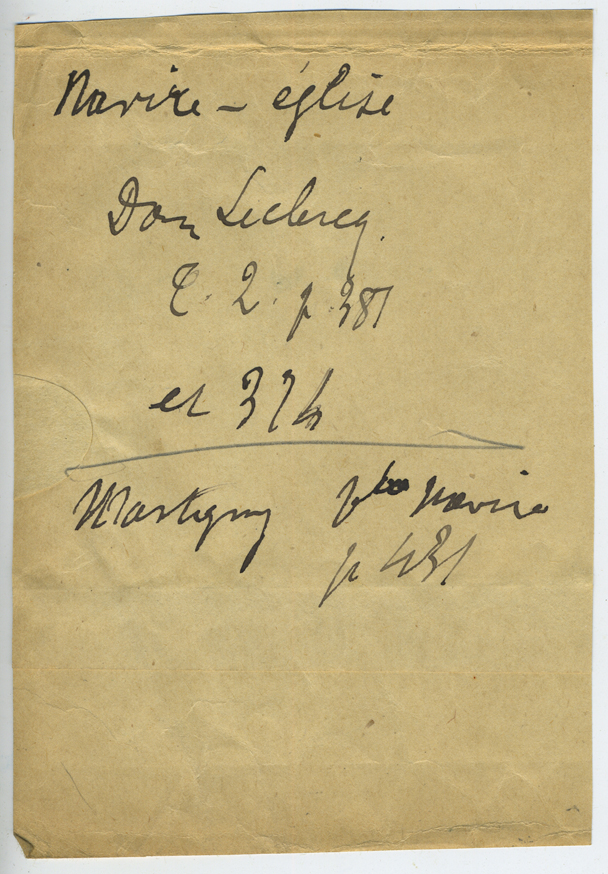 Navire – église
Dom Leclercq.
t. 2. p. 381
et 374
Martigny navire
p 431